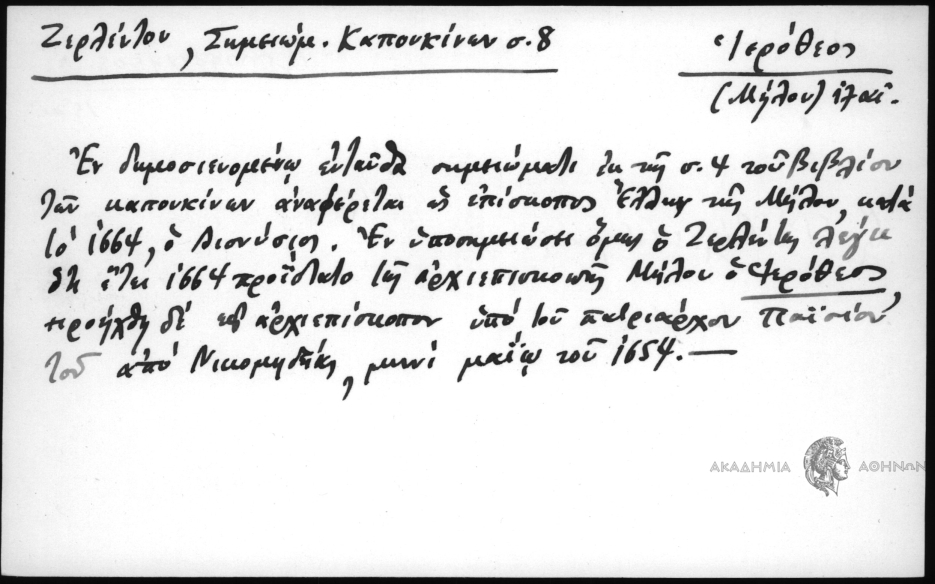 Ζερλέντου, Σημειώμ. Καπουκίνων σ. 8
Ἱερόθεος
(Μήλου) ιζαι.
Ἐν δημοσιευομένῳ ἐνταῦθα σημειώματι ἐκ τῆς σ. 4 τοῦ βιβλίου
τῶν καπουκίνων ἀναφέρεται ὡς ἐπίσκοπος Ἕλλην τῆς Μήλου, κατά
τό 1664, ὁ Διονύσιος. Ἐν ὑποσημειώσει ὅμως ὁ Ζερλέντης λέγει
ὅτι ἔτει 1664 προΐστατο τῆς ἀρχιεπισκοπῆς Μήλου ὁ Ἱερόθεος,
προήχθη δέ εἰς ἀρχιεπίσκοπον ὑπό τοῦ πατριάρχου Παϊσίου
τοῦ ἀπό Νικομηδείας, μηνί μαΐῳ τοῦ 1654.—
ΑΚΑΔΗΜΙΑ ΑΘΗΝΩΝ